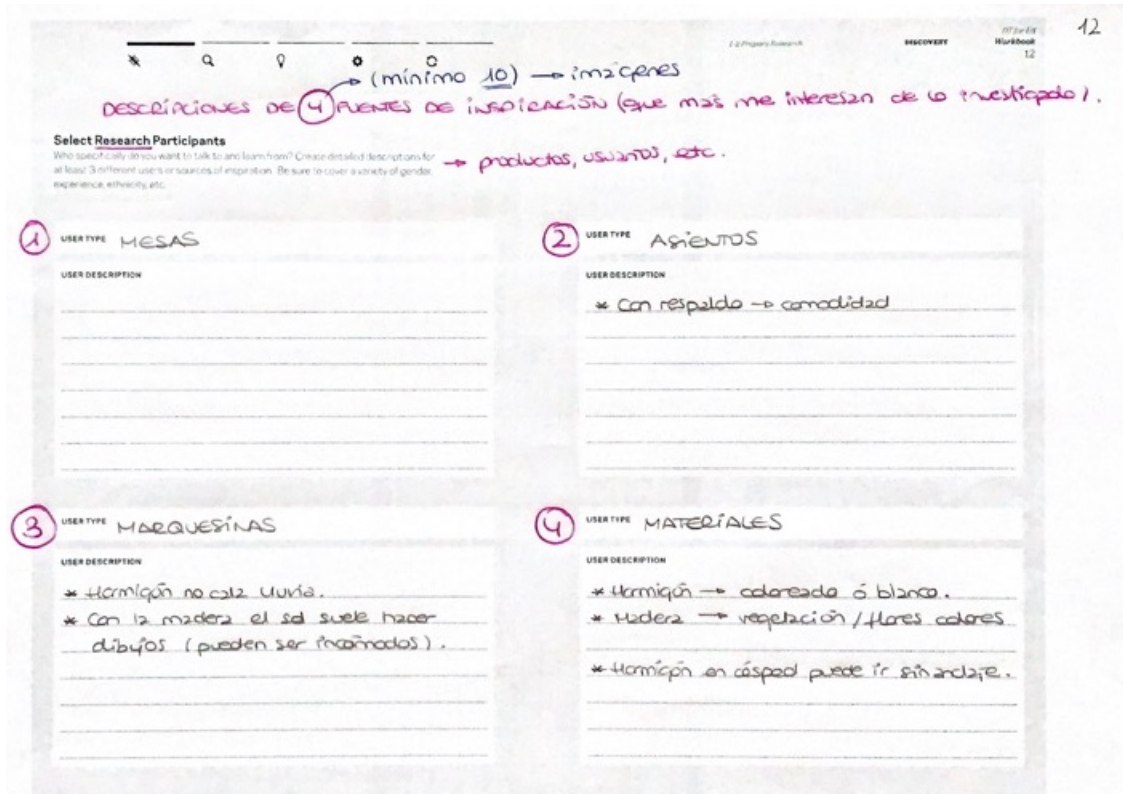 12
1-2 Prepare Research
DISCOVERY
DT for Ed
Workbook
12
(mínimo 10) → imágenes
DESCRIPCIONES DE 4 FUENTES DE INSPIRACIÓN (que más me interesan de lo investigado).
Select Research Participants
Who specifically do you want to talk to and learn from? Create detailed descriptions for
at least 3 different users or sources of inspiration. Be sure to cover a variety of gender,
experience, ethnicity, etc.
→ productos, usuarios, etc.
1 USER TYPE MESAS
USER DESCRIPTION
2 USER TYPE ASIENTOS
USER DESCRIPTION
* Con respaldo → comodidad
3 USER TYPE MARQUESINAS
USER DESCRIPTION
* Hormigón no cala lluvia.
* Con la madera el sol suele hacer
dibujos (pueden ser incómodos).
4 USER TYPE MATERIALES
USER DESCRIPTION
* Hormigón → coloreado ó blanco.
* Madera → vegetación / flores colores
* Hormigón en césped puede ir sin anclaje.